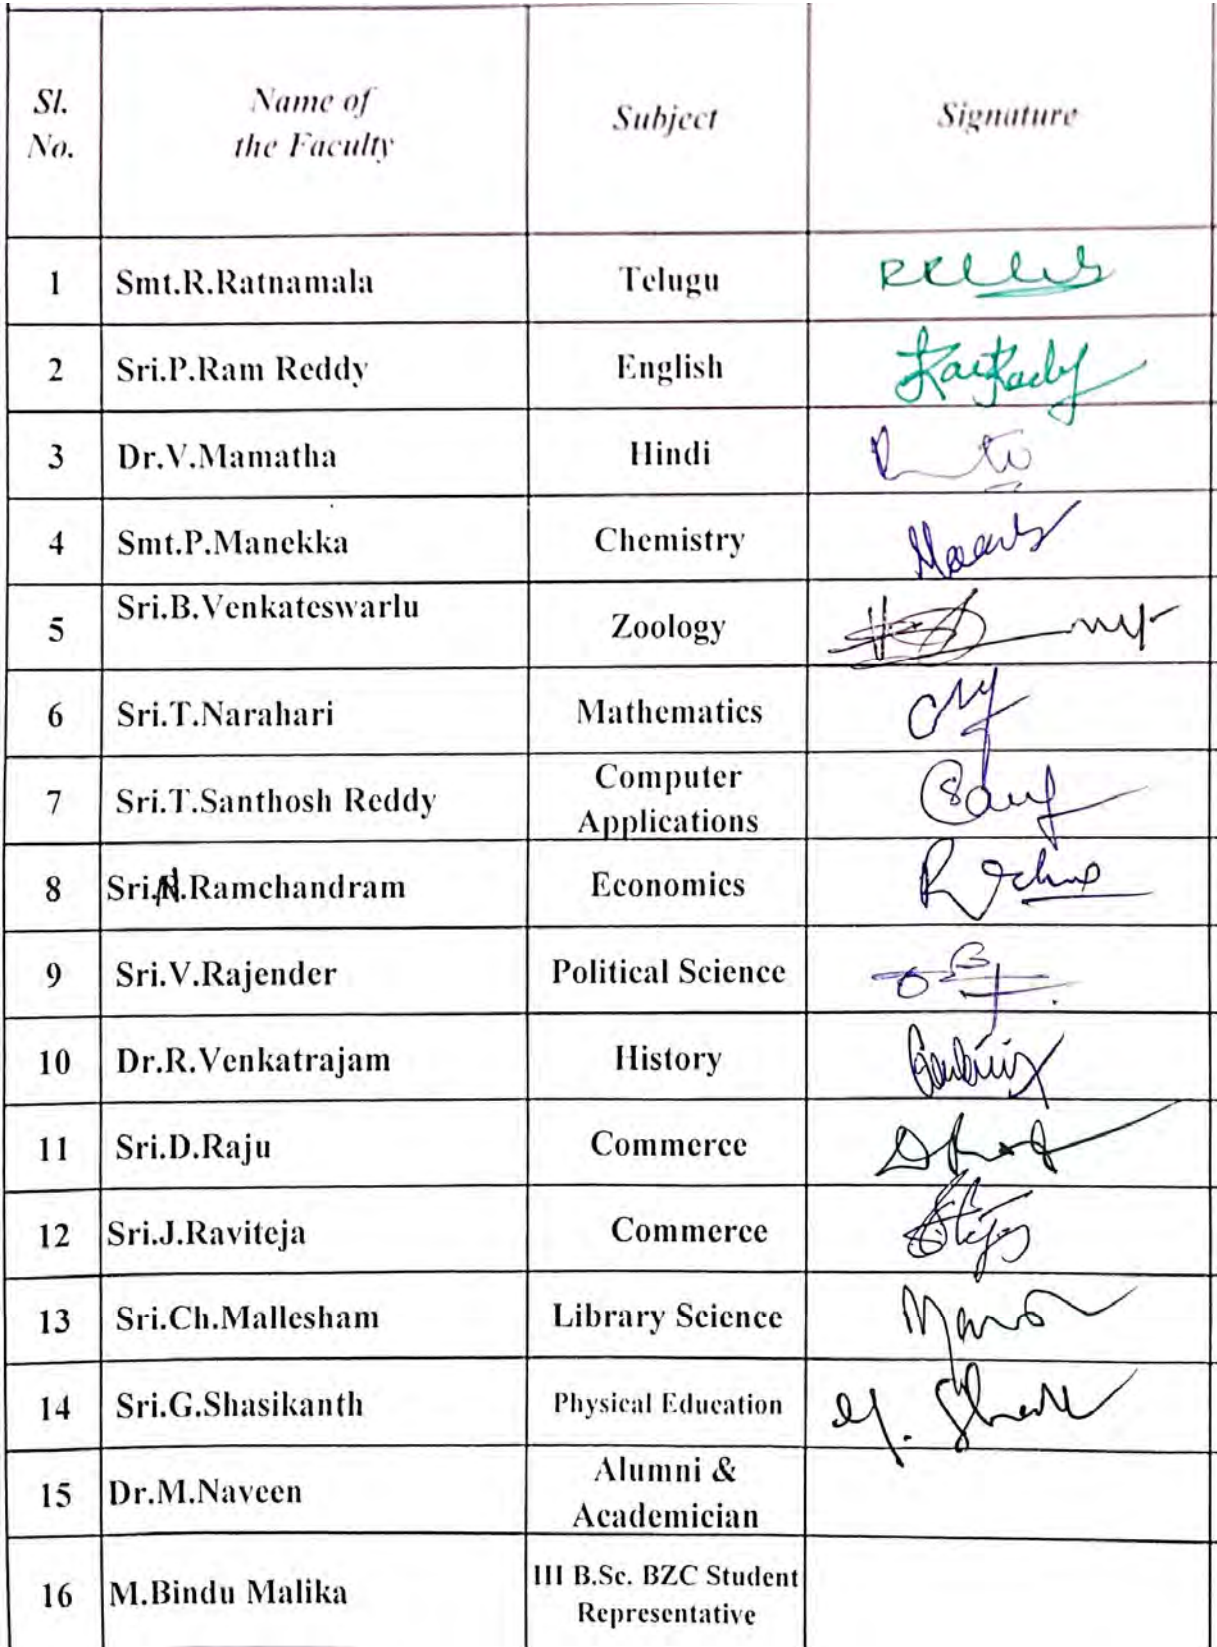 Sl. No.
Name of the Faculty
Subject
Signature
1 Smt.R.Ratnamala Telugu
2 Sri.P.Ram Reddy English
3 Dr.V.Mamatha Hindi
4 Smt.P.Manekka Chemistry
5 Sri.B.Venkateswarlu Zoology
6 Sri.T.Narahari Mathematics
7 Sri.T.Santhosh Reddy Computer Applications
8 Sri.N.Ramchandram Economics
9 Sri.V.Rajender Political Science
10 Dr.R.Venkatrajam History
11 Sri.D.Raju Commerce
12 Sri.J.Raviteja Commerce
13 Sri.Ch.Mallesham Library Science
14 Sri.G.Shasikanth Physical Education
15 Dr.M.Naveen Alumni & Academician
16 M.Bindu Malika III B.Sc. BZC Student Representative